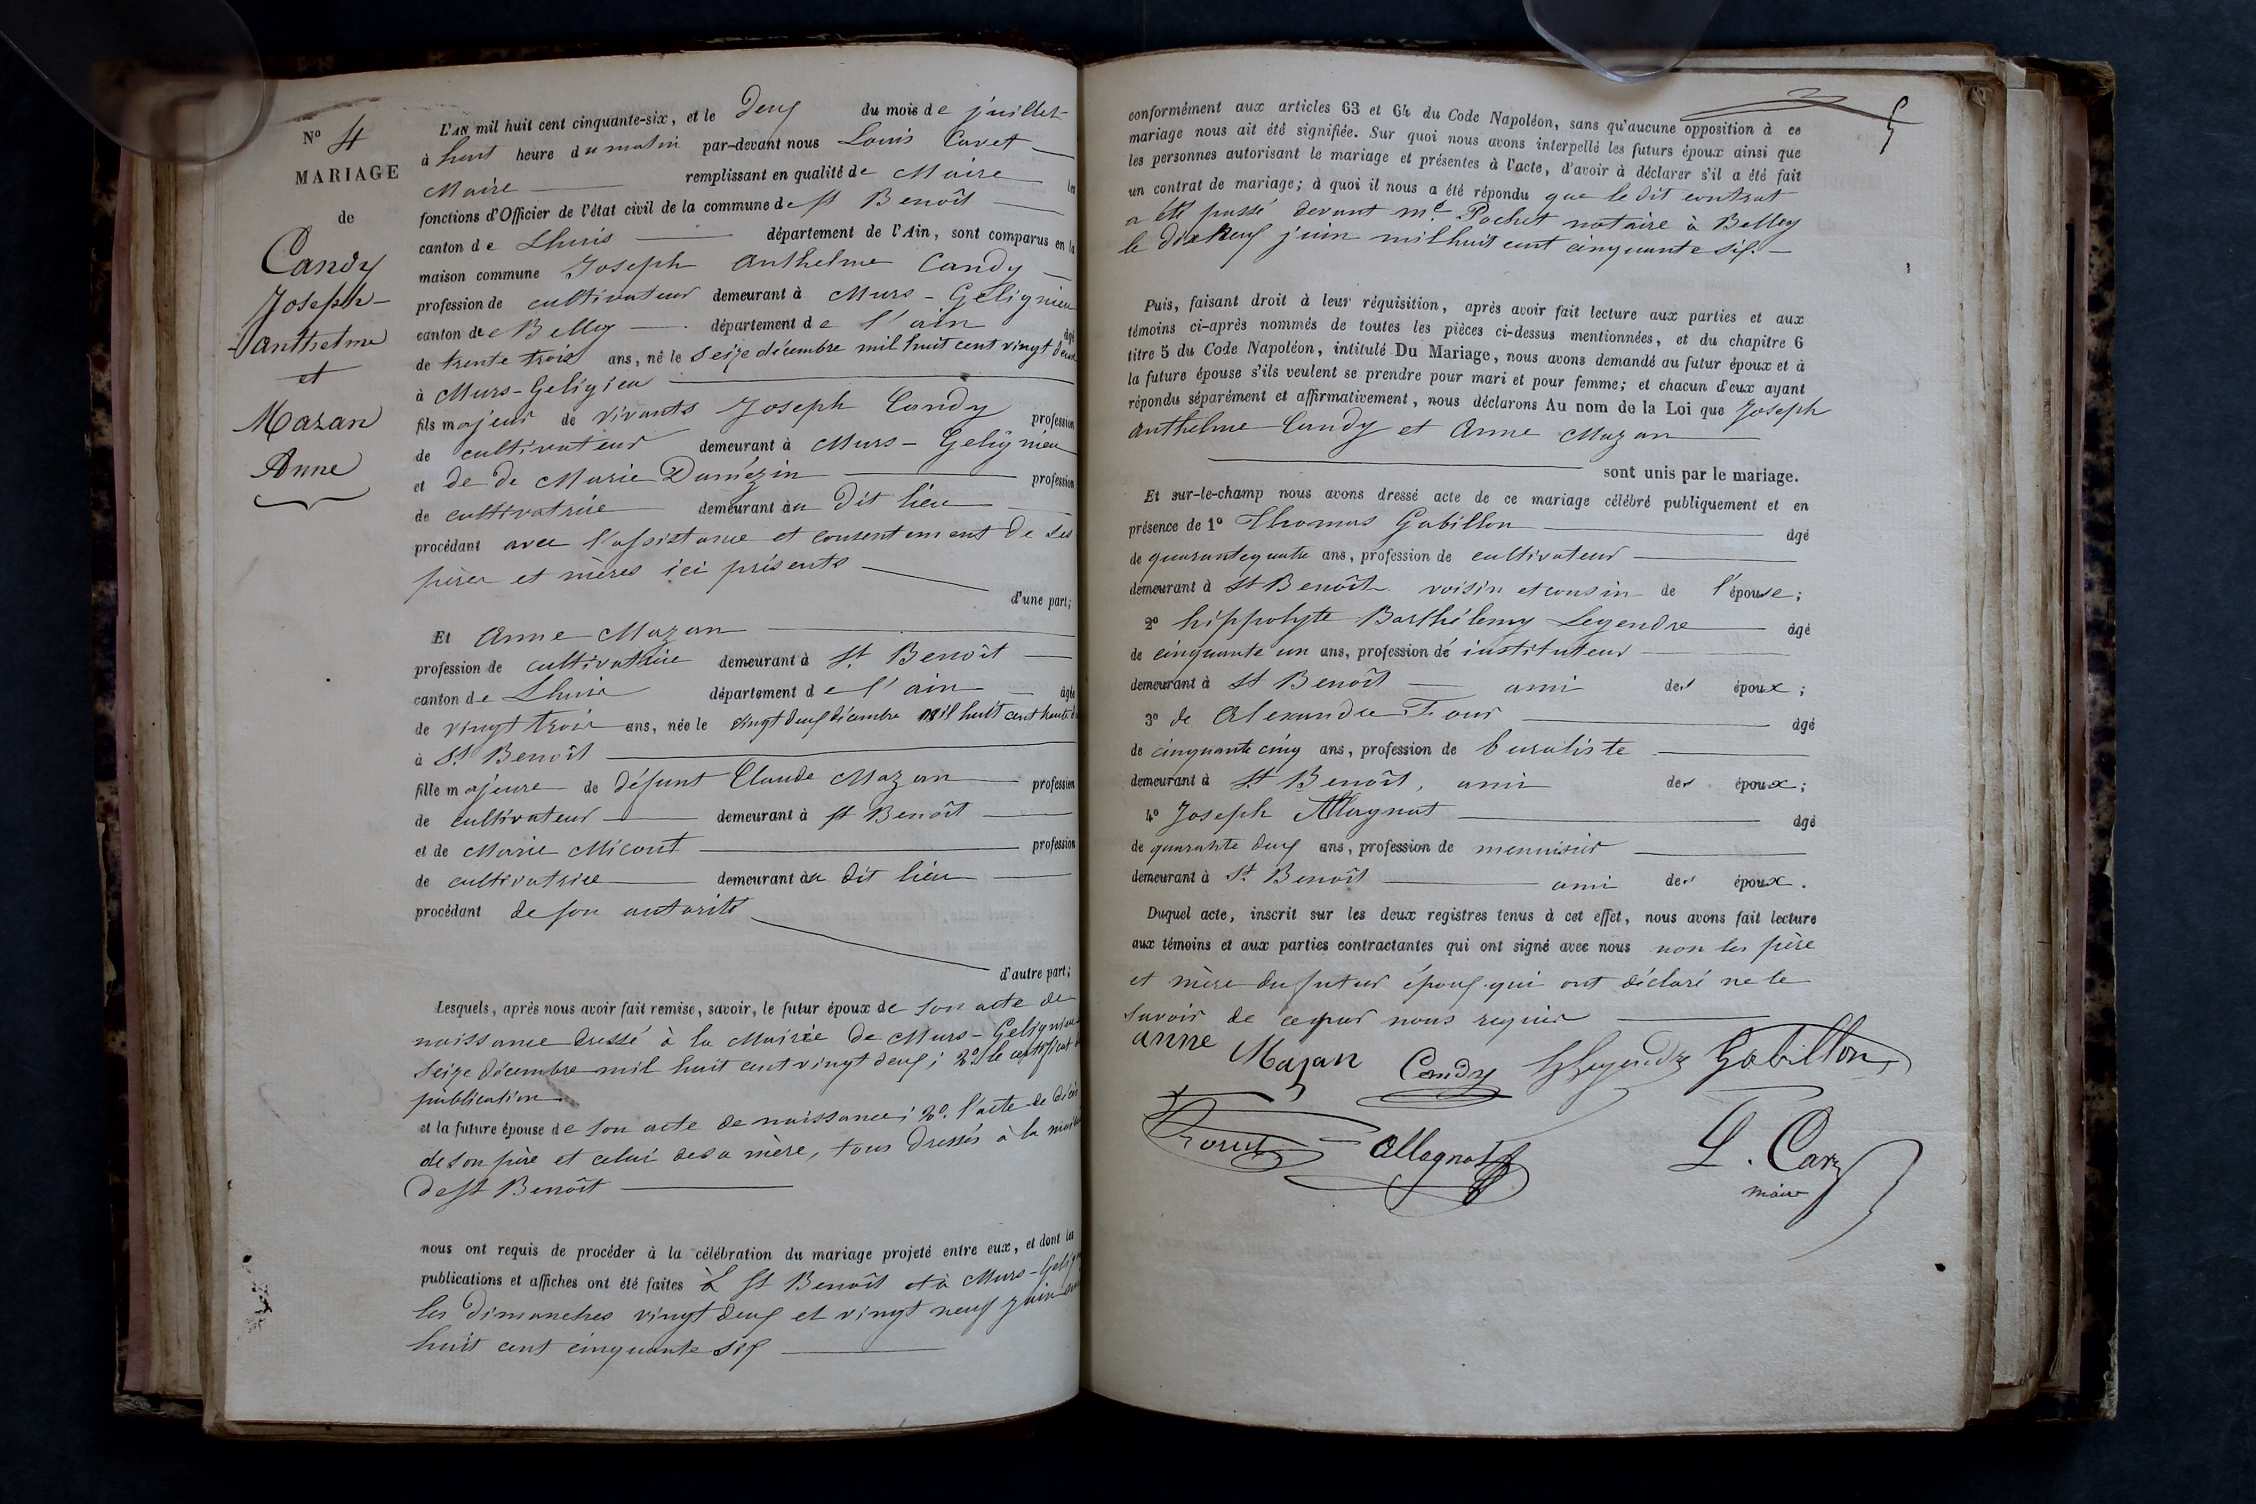 N° 4
MARIAGE
de
Candy
Joseph-
anthelme
et
Mazan
Anne
L'AN mil huit cent cinquante-six, et le deux du mois de juillet
à huit heure du matin par-devant nous Louis Cavet
Maire remplissant en qualité de Maire les
fonctions d'Officier de l'état civil de la commune de St Benoît
canton de Lhuis département de l'Ain, sont comparus en la
maison commune Joseph Anthelme Candy
profession de cultivateur demeurant à Murs-Gélignieu
canton de Belley département de l'ain âgé
de trente trois ans, né le seize décembre mil huit cent vingt deux
à Murs-Geligieu
fils majeur de vivants Joseph Candy profession
de cultivateur demeurant à Murs-Gelignieu
et de de Marie Damézin profession
de cultivatrice demeurant au dit lieu
procédant avec l'assistance et consentement de ses
pères et mères ici présents
d'une part;
Et Anne Mazan
profession de cultivatrice demeurant à St. Benoît
canton de Lhuis département de l'ain âgée
de vingt trois ans, née le vingt deux décembre mil huit cent trente
à St. Benoît
fille majeure de défunt Claude Mazan profession
de cultivateur demeurant à St Benoît
et de Marie Micout profession
de cultivatrice demeurant au dit lieu
procédant de son autorité
d'autre part;
Lesquels, après nous avoir fait remise, savoir, le futur époux de son acte de
naissance dressé à la Mairie de Murs-Gelignieu
seize décembre mil huit cent vingt deux; 2° le certificat de
publication.
et la future épouse de son acte de naissance; 2°. l'acte de décès
de son père et celui de sa mère, tous dressés à la mairie
de St Benoît
nous ont requis de procéder à la célébration du mariage projeté entre eux, et dont les
publications et affiches ont été faites à St Benoît et à Murs-Gelig
les dimanches vingt deux et vingt neuf juin mil
huit cent cinquante six
5
conformément aux articles 63 et 64 du Code Napoléon, sans qu'aucune opposition à ce
mariage nous ait été signifiée. Sur quoi nous avons interpellé les futurs époux ainsi que
les personnes autorisant le mariage et présentes à l'acte, d'avoir à déclarer s'il a été fait
un contrat de mariage; à quoi il nous a été répondu que le dit contrat
a été passé devant Me. Pochet notaire à Belley
le dix neuf juin mil huit cent cinquante six.
Puis, faisant droit à leur réquisition, après avoir fait lecture aux parties et aux
témoins ci-après nommés de toutes les pièces ci-dessus mentionnées, et du chapitre 6
titre 5 du Code Napoléon, intitulé Du Mariage, nous avons demandé au futur époux et à
la future épouse s'ils veulent se prendre pour mari et pour femme; et chacun d'eux ayant
répondu séparément et affirmativement, nous déclarons Au nom de la Loi que Joseph
Anthelme Candy et Anne Mazan
sont unis par le mariage.
Et sur-le-champ nous avons dressé acte de ce mariage célébré publiquement et en
présence de 1° Thomas Gabillon âgé
de quarante quatre ans, profession de cultivateur
demeurant à St Benoît voisin et cousin de l'épouse;
2° hippolyte Barthélemy Legendre âgé
de cinquante un ans, profession de instituteur
demeurant à St Benoît ami des époux;
3° de Alexandre âgé
de cinquante cinq ans, profession de buraliste
demeurant à St. Benoît, ami des époux;
4° Joseph Allagnat âgé
de quarante deux ans, profession de menuisier
demeurant à St. Benoît ami des époux.
Duquel acte, inscrit sur les deux registres tenus à cet effet, nous avons fait lecture
aux témoins et aux parties contractantes qui ont signé avec nous non les père
et mère du futur époux qui ont déclaré ne le
savoir de ce par nous requis
anne Mazan Candy HLegendre Gabillon
Allagnat L. Cav
maire